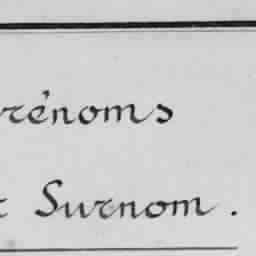 rénoms
Surnom.